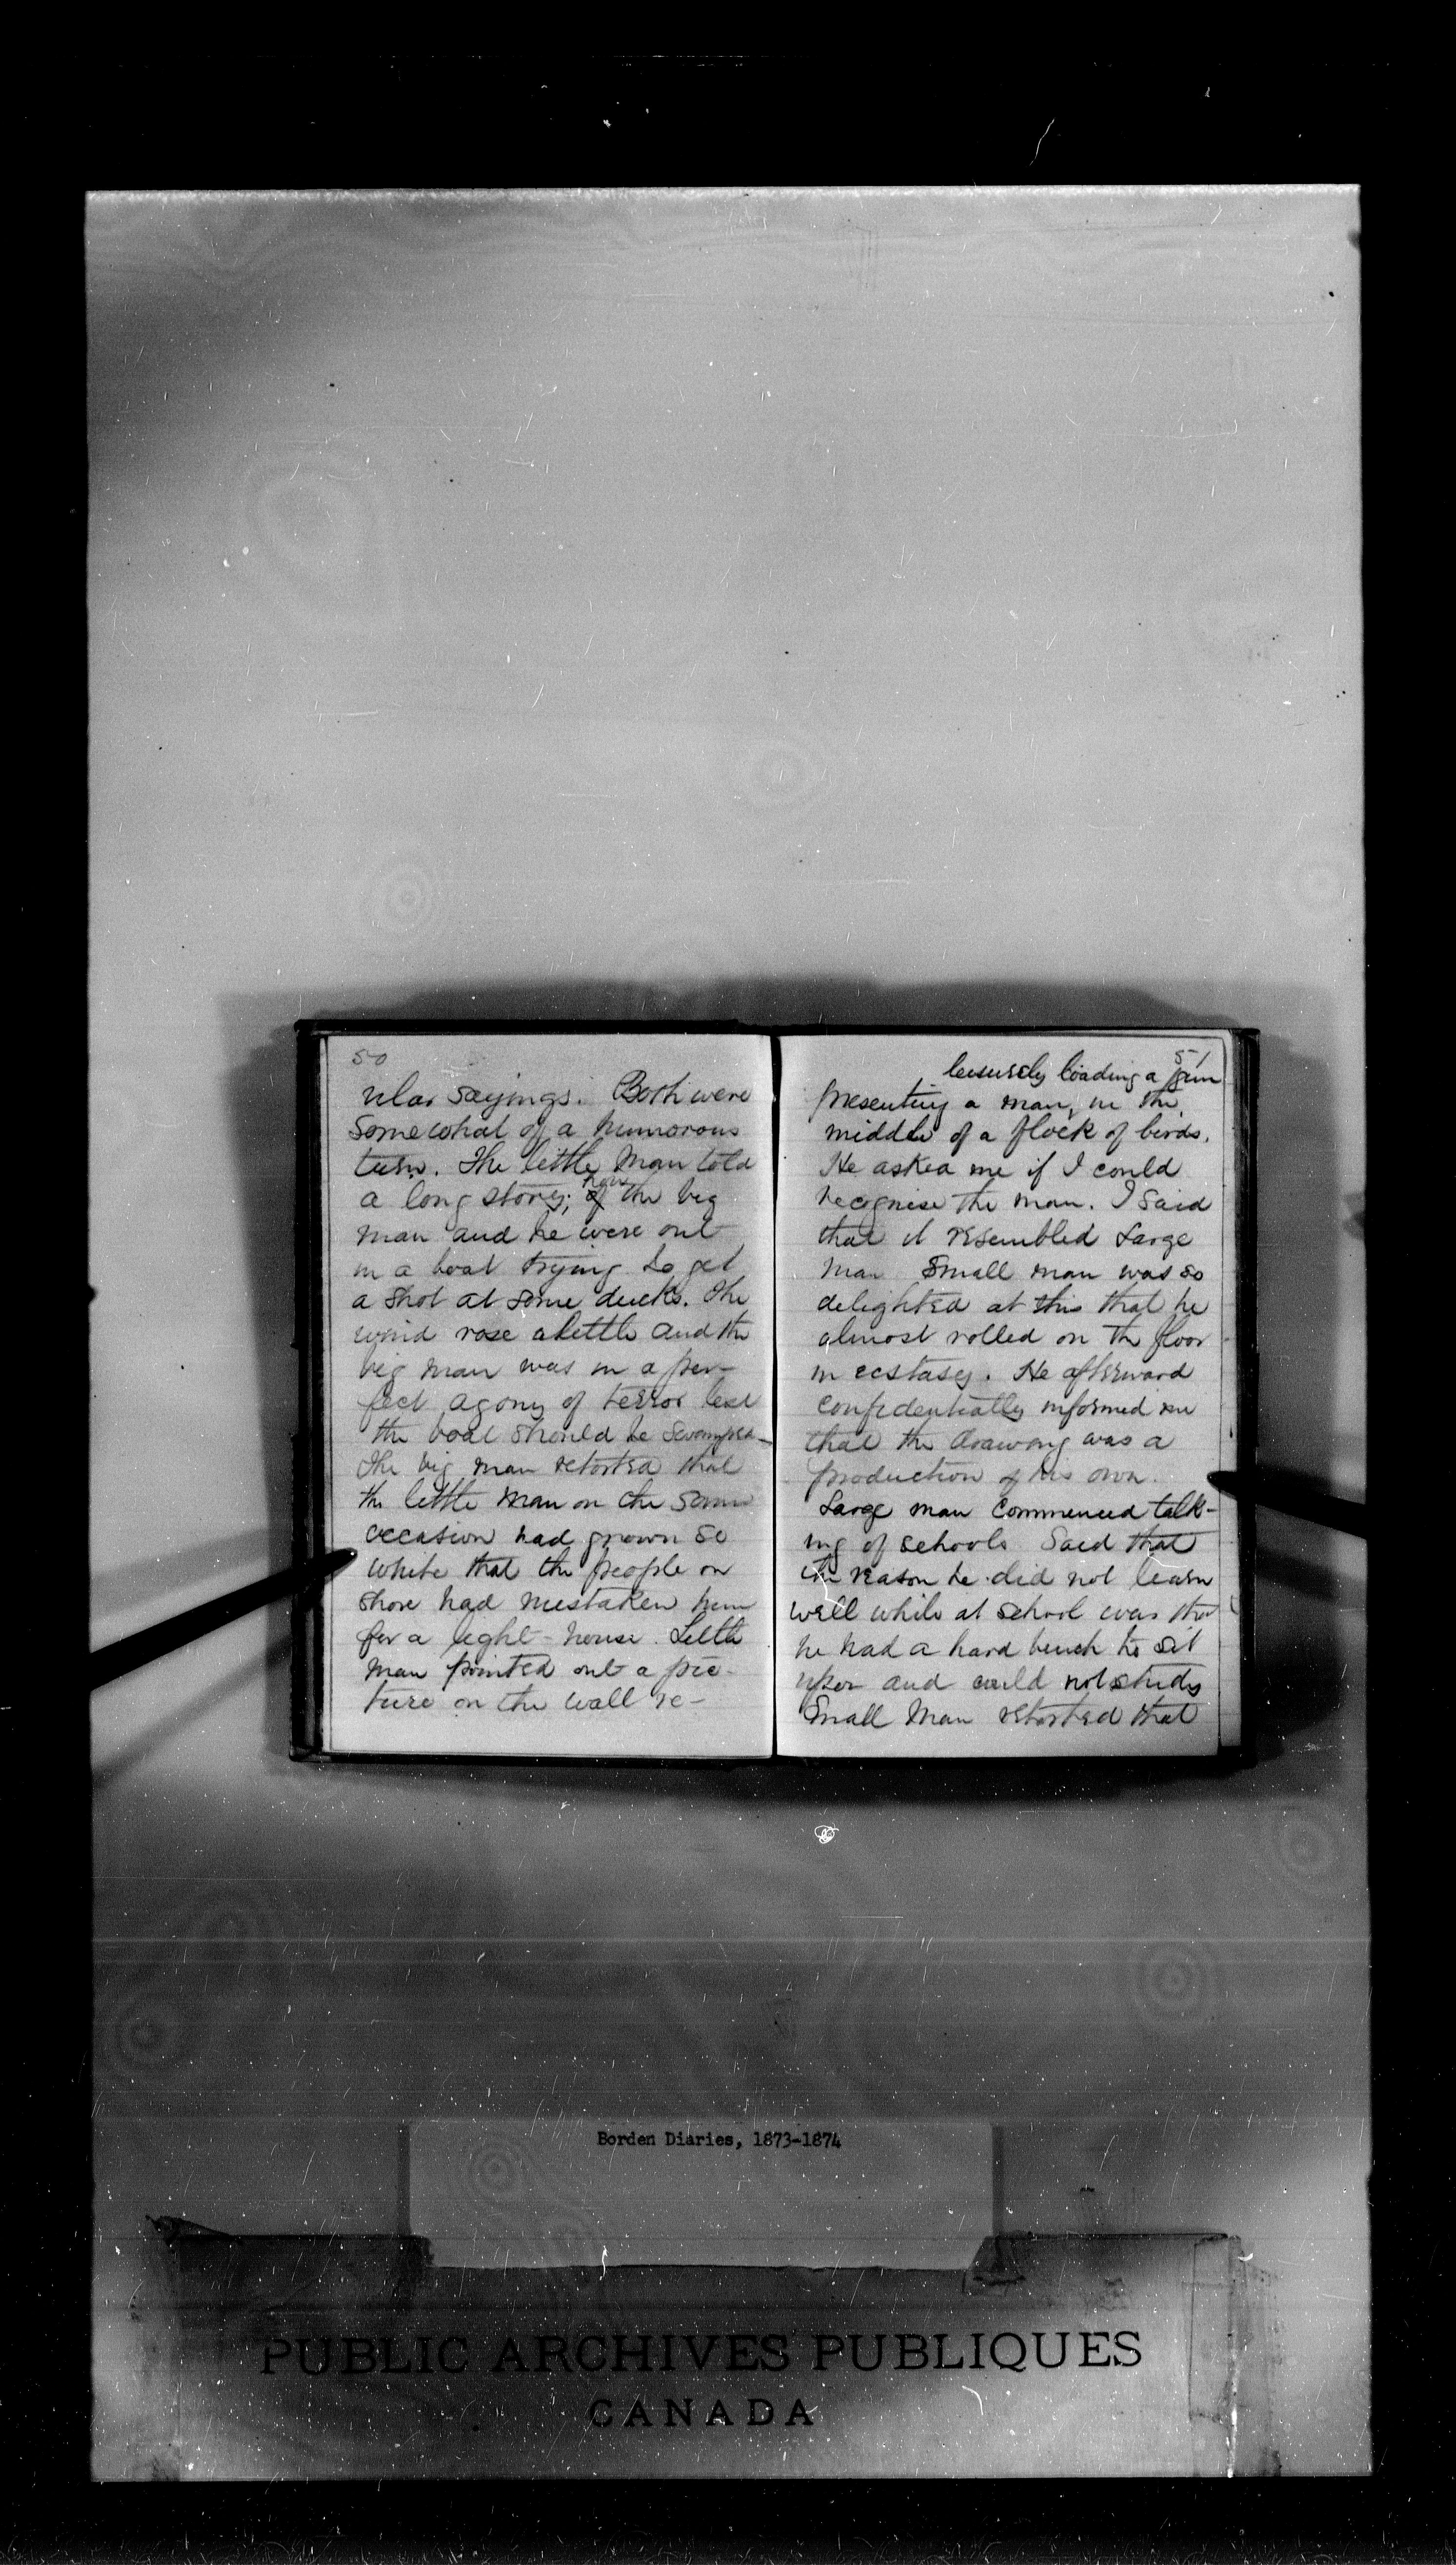 50
ular sayings. Both were
somewhat of a humorous
turn. The little man told
a long story; how the big
man and he were out
in a boat trying to get
a shot at some ducks. The
wind rose a little and the
big man was in a per-
fect agony of terror lest
the boat should be swamped.
The big man retorted that
the little man on the same
occasion had grown so
white that the people on
shore had mistaken him
for a light-house. Little
man pointed out a pic-
ture on the wall re-
51
leisurely loading a gun
presenting a man, in the
middle of a flock of birds.
He asked me if I could
recognise the man. I said
that it resembled Large
man Small man was so
delighted at this that he
almost rolled on the floor
in ecstasy. He afterward
confidentially informed me
that the drawing was a
production of his own.
Large man commenced talk-
ing of schools Said that
the reason he did not learn
well while at school was that
he had a hard bench to sit
upon and could not study
Small Man retorted that
Borden Diaries, 1873-1874
PUBLIC ARCHIVES PUBLIQUES
CANADA